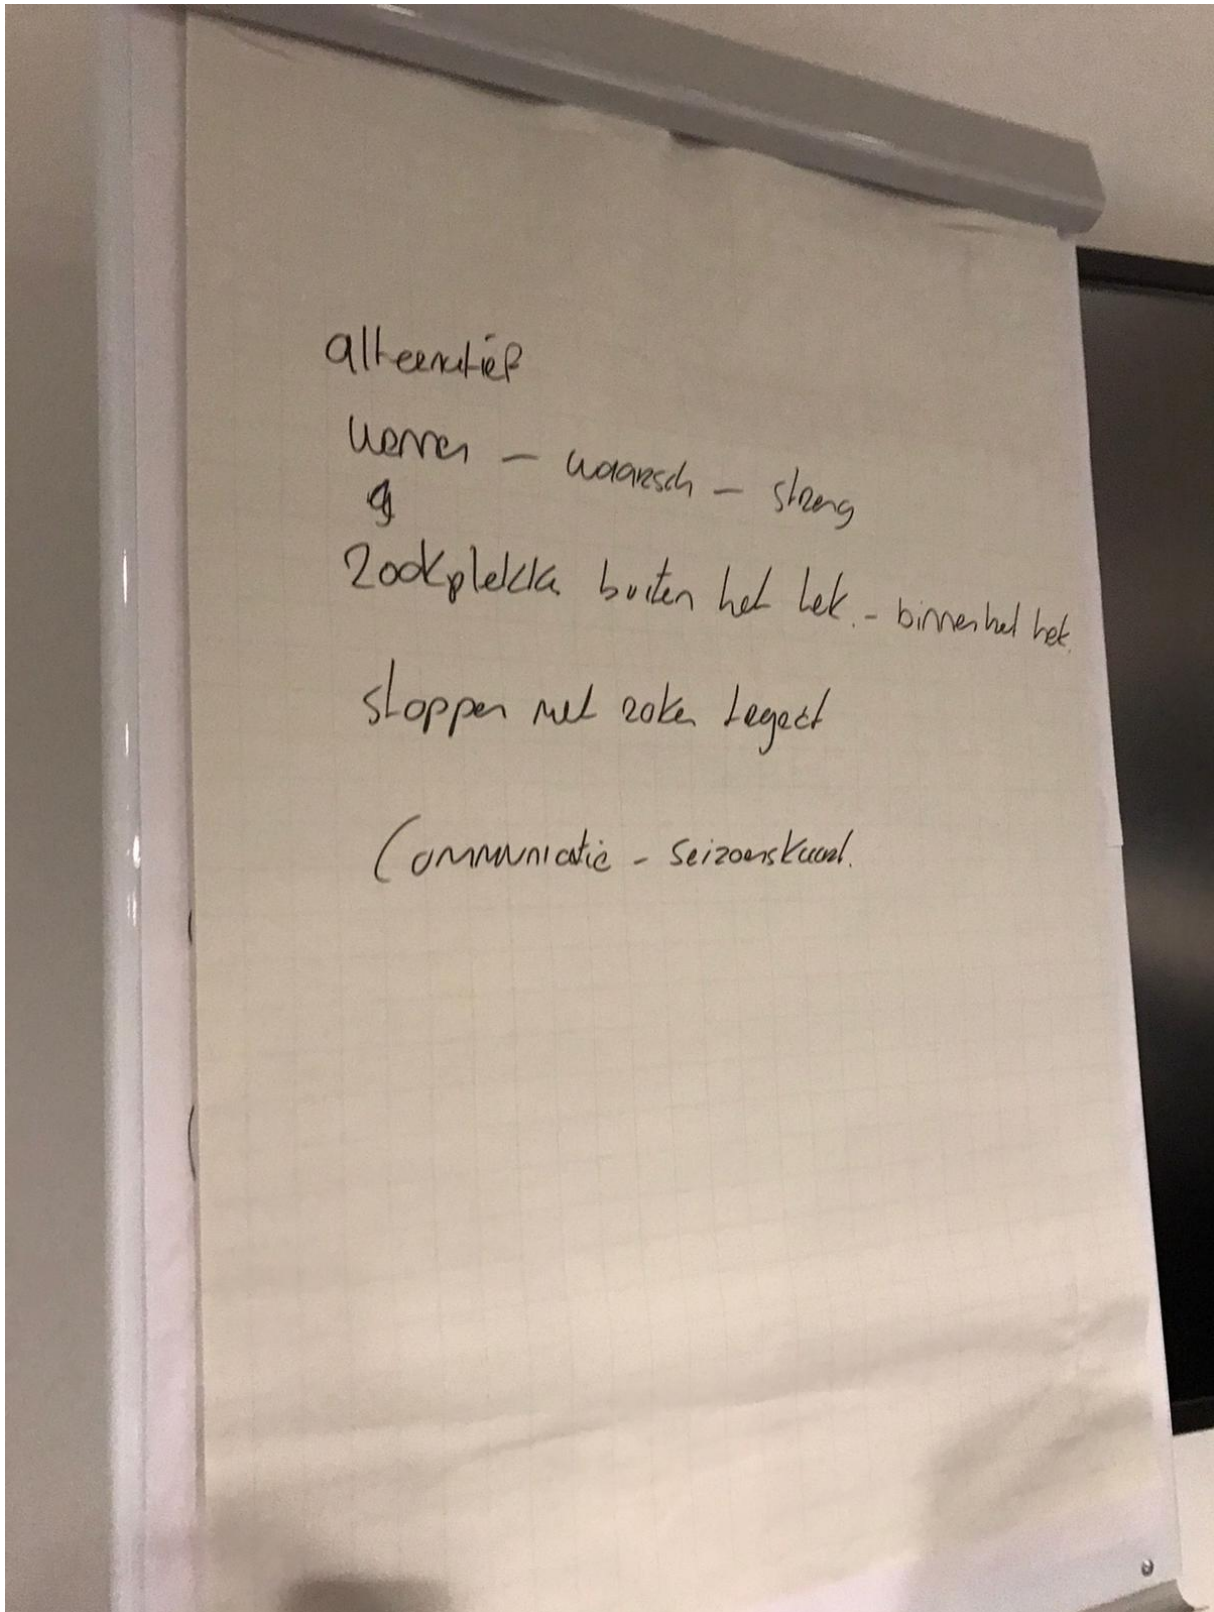 alternatief
wennen – waarsch – streng
rookplekken buiten het hek. – binnen het hek.
stoppen met roken traject
Communicatie – seizoenskaart.